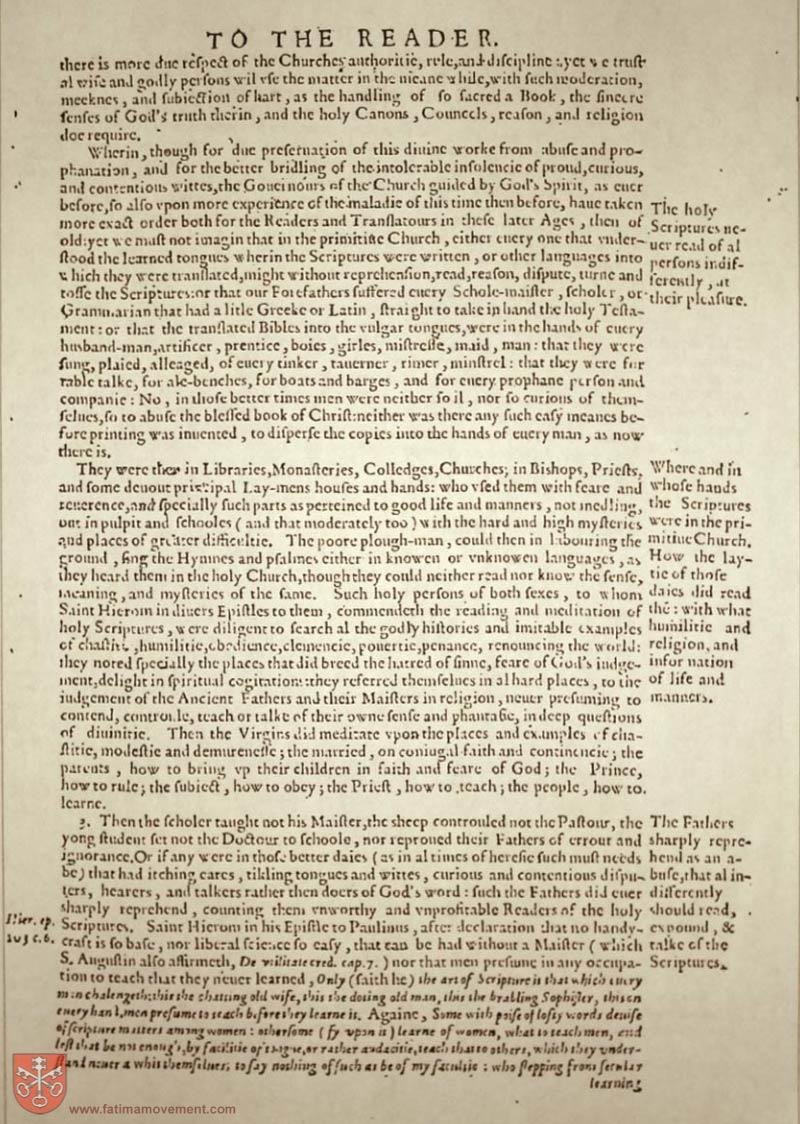 TO THE READER.
there is more due respect of the Churches authoritie, rule, and discipline : yet we trust
al wise and godly persons wil vse the matter in the meane while, with such moderation,
meeknes, and subiection of hart, as the handling of so sacred a Book, the sincere
senses of God's truth therin, and the holy Canons, Councels, reason, and religion
doe require.
Wherin, though for due preseruation of this diuine worke from abuse and pro-
phanation, and for the better bridling of the intolerable insolencie of proud, curious,
and contentious wittes, the Gouernours of the Church guided by God's Spirit, as euer
before, so also vpon more experience of the maladie of this time then before, haue taken
more exact order both for the Readers and Translatours in these later Ages, then of
old: yet we must not imagin that in the primitiue Church, either euery one that vnder-
stood the learned tongues wherin the Scriptures were written, or other languages into
which they were translated, might without reprehension, read, reason, dispute, turne and
tosse the Scriptures: or that our Forefathers suffered euery Schole-maister, scholer, or
Grammarian that had a little Greeke or Latin, straight to take in hand the holy Testa-
ment: or that the translated Bibles into the vulgar tongues, were in the hands of euery
husband-man, artificer, prentice, boies, girles, mistresse, maid, man: that they were
sung, plaied, alleaged, of euery tinker, tauerner, rimer, minstrel: that they were for
table talke, for ale-benches, for boats and barges, and for euery prophane person and
companie: No, in those better times men were neither so il, nor so curious of them-
selues, so to abuse the blessed book of Christ: neither was there any such easy meanes be-
fore printing was inuented, to disperse the copies into the hands of euery man, as now
there is.
The holy
Scriptures ne-
uer read of al
persons indif-
ferently, at
their pleasure.
They were then in Libraries, Monasteries, Colledges, Churches; in Bishops, Priests,
and some deuout principal Lay-mens houses and hands: who vsed them with feare and
reuerence, and specially such parts as perteined to good life and manners, not medling,
but in pulpit and schooles (and that moderately too) with the hard and high mysteries
and places of greater difficultie. The poore plough-man, could then in labouring the
ground, sing the Hymnes and psalmes either in knowen or vnknowen languages, as
they heard them in the holy Church, though they could neither read nor know the sense,
meaning, and mysteries of the same. Such holy persons of both sexes, to whom
Saint Hierom in diuers Epistles to them, commendeth the reading and meditation of
holy Scriptures, were diligent to search al the godly histories and imitable examples
of chastitie, humilitie, obedience, clemencie, pouertie, penance, renouncing the world:
they noted specially the places that did breed the hatred of sinne, feare of God's iudge-
ment, delight in spiritual cogitations: they referred themselues in al hard places, to the
iudgement of the Ancient Fathers and their Maisters in religion, neuer presuming to
contend, controule, teach or talke of their owne sense and phantasie, in deep questions
of diuinitie. Then the Virgins did meditate vpon the places and examples of cha-
stitie, modestie and demurenesse; the married, on coniugal faith and continencie; the
parents, how to bring vp their children in faith and feare of God; the Prince,
how to rule; the subiect, how to obey; the Priest, how to teach; the people, how to
learne.
Where and in
whose hands
the Scriptures
were in the pri-
mitiue Church.
How the lay-
tie of those
daies did read
thē: with what
humilitie and
religion, and
information
of life and
manners.
3. Then the scholer taught not his Maister, the sheep controuled not the Pastour, the
yong student set not the Doctour to schoole, nor reproued their Fathers of errour and
ignorance. Or if any were in those better daies (as in al times of heresie such must needs
be) that had itching eares, tikling tongues and wittes, curious and contentious dispu-
ters, hearers, and talkers rather then doers of God's word: such the Fathers did euer
sharply reprehend, counting them vnworthy and vnprofitable Readers of the holy
Scriptures. Saint Hierom in his Epistle to Paulinus, after declaration that no handy-
craft is so base, nor liberal science so easy, that can be had without a Maister (which
S. Augustin also affirmeth, De vtilitate cred. cap. 7.) nor that men presume in any occupa-
tion to teach that they neuer learned, Only (saith he) the art of Scripture is that which euery
man chalengeth: this the chatting old wife, this the doting old man, this the brabling Sophister, this on
euery hand, men presume to teach before they learne it. Againe, Some with poise of lofty words deuise
of scripture matters among women: othersome (fy vpon it) learne of women, what to teach men, and
lest that be not enough, by facilitie of tongue, or rather audacitie, teach that to others, which they vnder-
stand neuer a whit themselues, to say nothing of such as be of my facultie: who stepping from secular
learning
Hier. ep.
103 c. 6.
The Fathers
sharply repre-
hend as an a-
buse, that al in-
differently
should read,
expound, &
talke of the
Scriptures.
www.fatimamovement.com